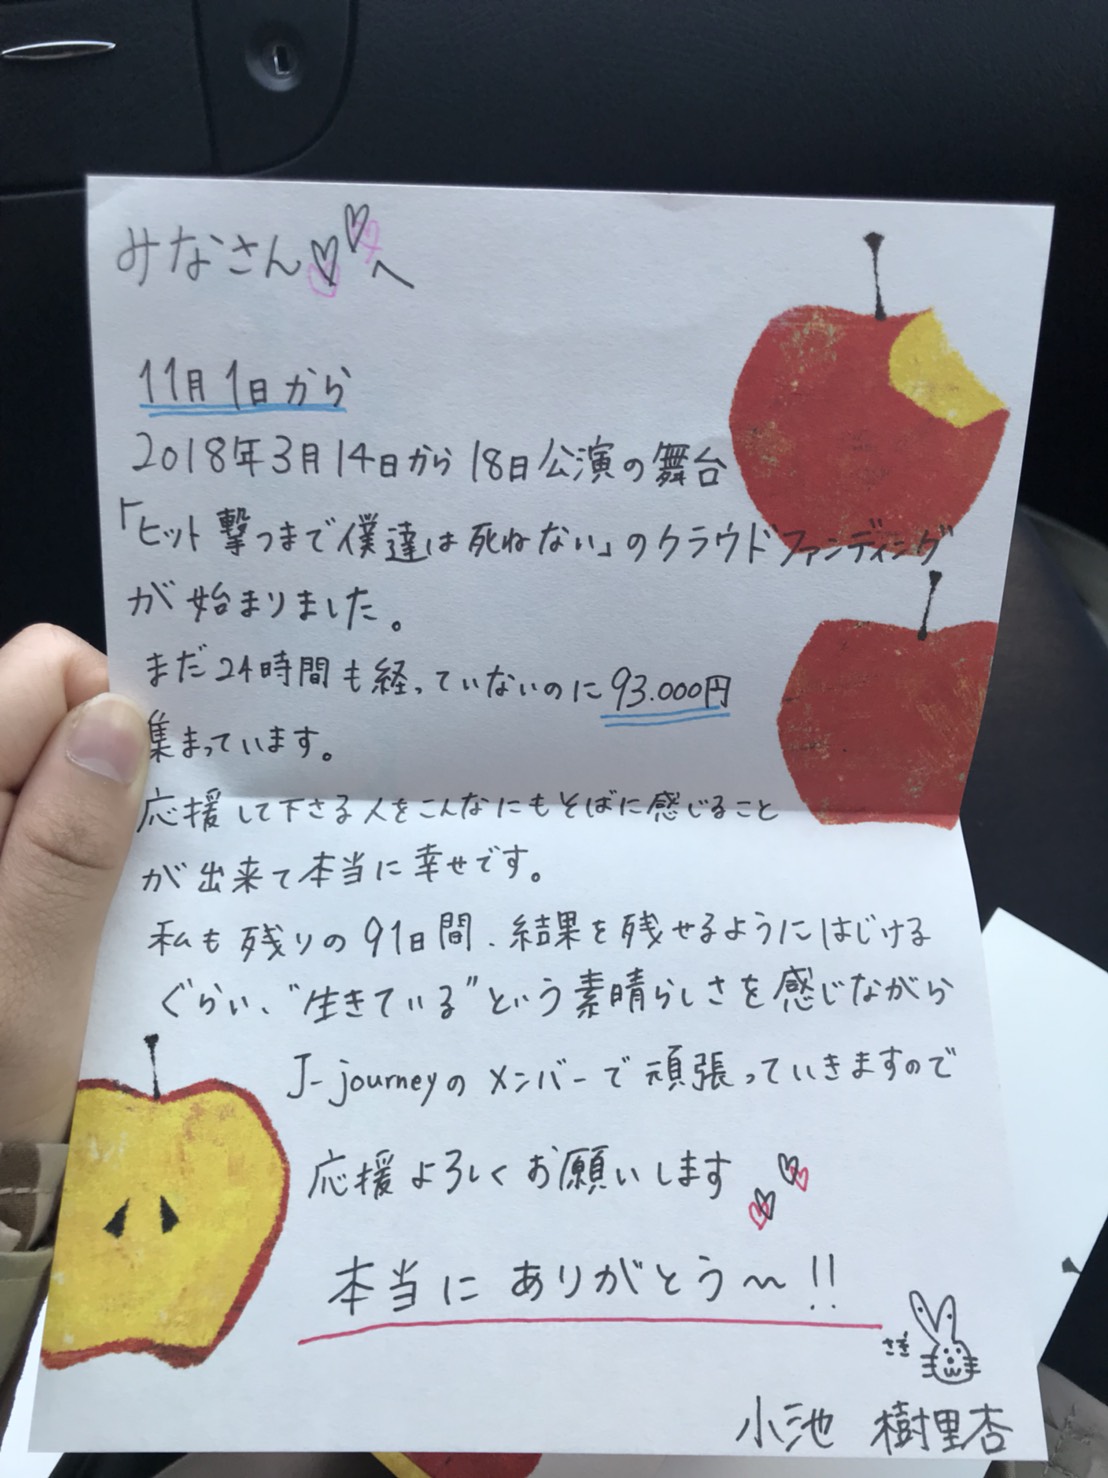 みなさんへ
11月1日から
2018年3月14日から18日公演の舞台
「ヒット撃つまで僕達は死ねない」のクラウドファンディング
が始まりました。
まだ24時間も経っていないのに93.000円
集まっています。
応援して下さる人をこんなにもそばに感じること
が出来て本当に幸せです。
私も残りの91日間、結果を残せるようにはじける
ぐらい、"生きている"という素晴らしさを感じながら
J-journeyのメンバーで頑張っていきますので
応援よろしくお願いします
本当にありがとう〜!!
小池 樹里杏